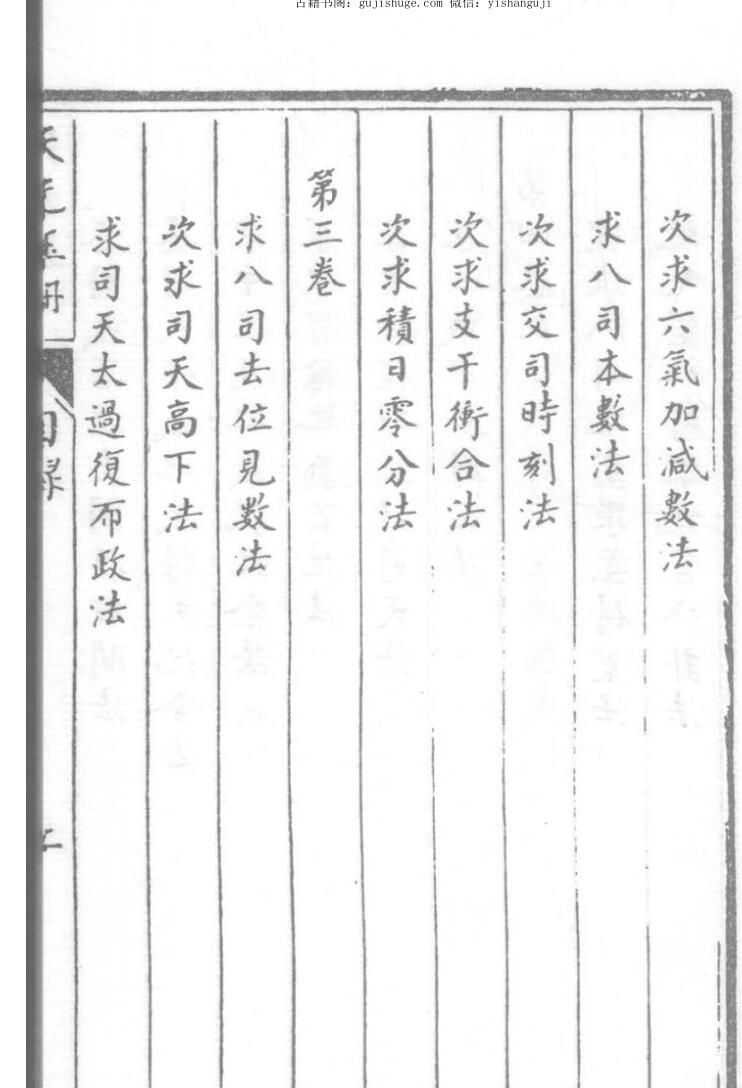 古籍书阁: gujishuge.com 微信: yishanguji
次求六氣加減數法
求八司本數法
次求交司時刻法
次求支干衝合法
次求積日零分法
第三卷
求八司去位見數法
次求司天高下法
求司天太過復布政法
天元玉冊
目録